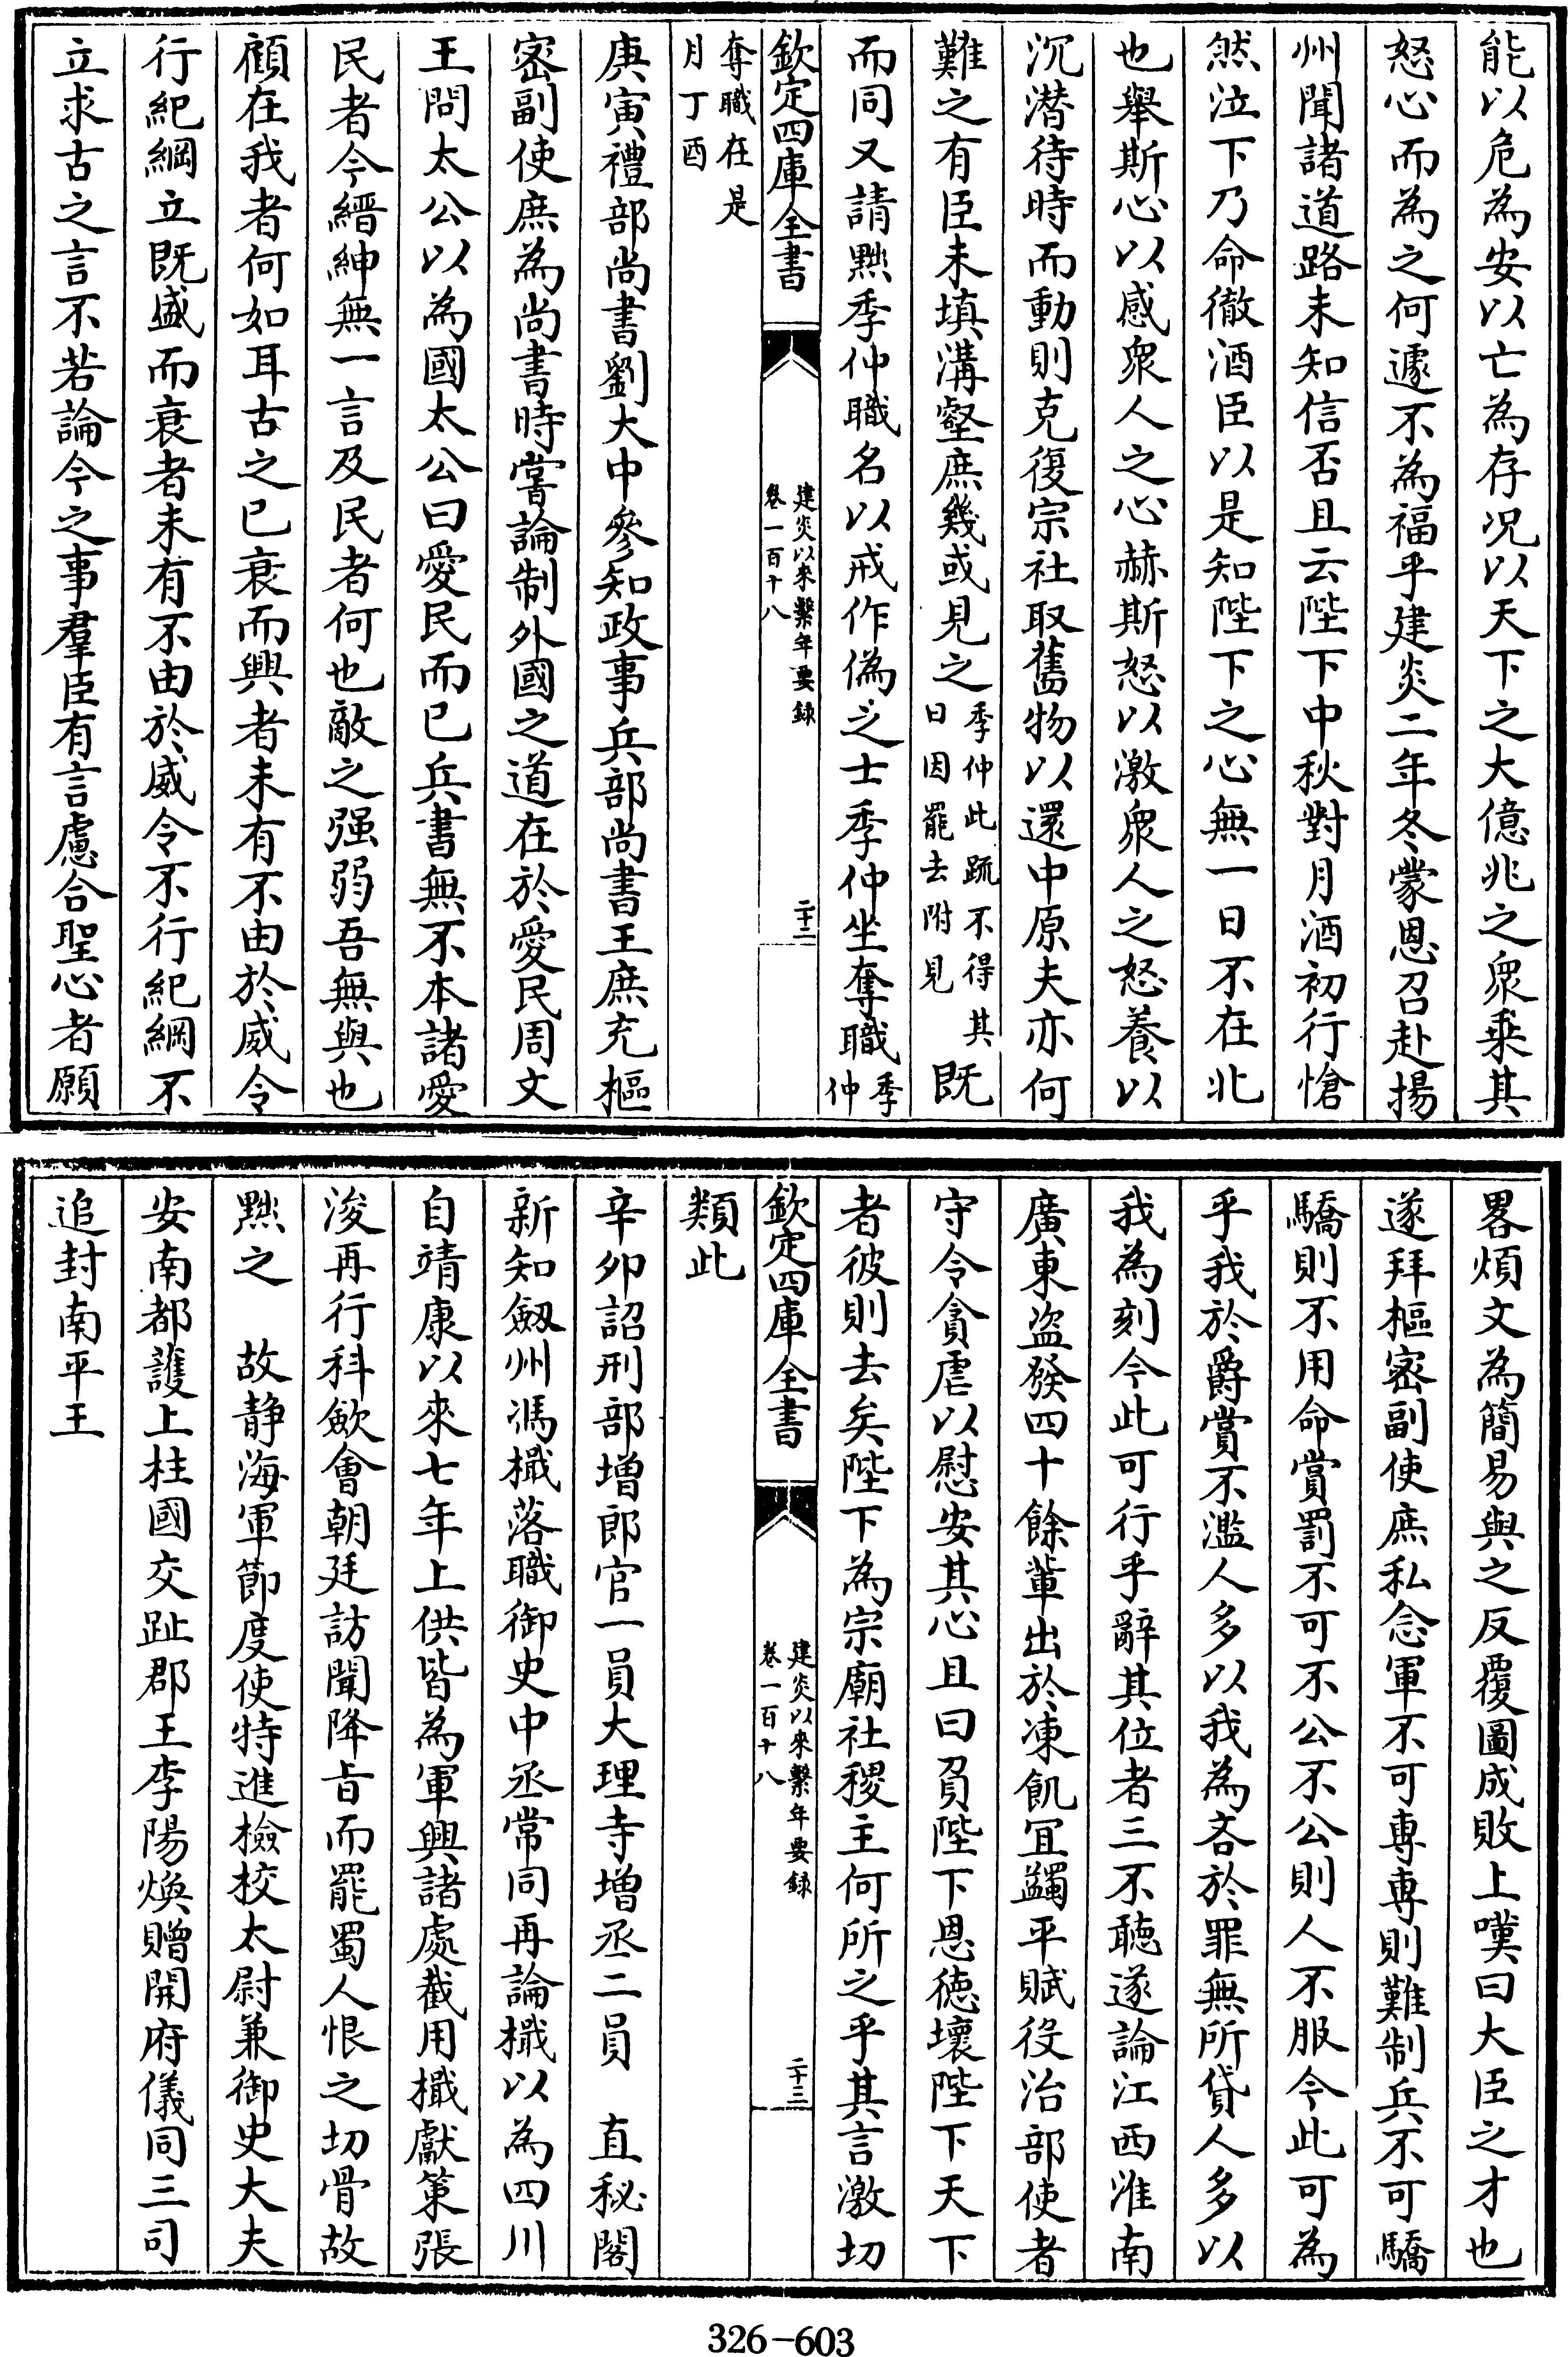 能以危為安以亡為存况以天下之大億兆之衆乗其
怒心而為之何遽不為福乎建炎二年冬蒙恩召赴揚
州聞諸道路未知信否且云陛下中秋對月酒初行愴
然泣下乃命徹酒臣以是知陛下之心無一日不在北
也舉斯心以感衆人之心赫斯怒以激衆人之怒養以
沉潜待時而動則克復宗社取舊物以還中原夫亦何
難之有臣未填溝壑庶幾或見之季仲此疏不得其
日因罷去附見既
而同又請黜季仲職名以戒作偽之士季仲坐奪職季
仲
欽定四庫全書
建炎以來繫年要録
卷一百十八
二十二
奪職在是
月丁酉
庚寅禮部尚書劉大中參知政事兵部尚書王庶充樞
密副使庶為尚書時嘗論制外國之道在於愛民周文
王問太公以為國太公曰愛民而已兵書無不本諸愛
民者今縉紳無一言及民者何也敵之强弱吾無與也
顧在我者何如耳古之已衰而興者未有不由於威令
行紀綱立既盛而衰者未有不由於威令不行紀綱不
立求古之言不若論今之事羣臣有言慮合聖心者願
畧煩文為簡易與之反覆圖成敗上嘆曰大臣之才也
遂拜樞密副使庶私念軍不可専専則難制兵不可驕
驕則不用命賞罰不可不公不公則人不服今此可為
乎我於爵賞不濫人多以我為吝於罪無所貸人多以
我為刻今此可行乎辭其位者三不聽遂論江西淮南
廣東盜發四十餘輩出於凍飢宜蠲平賦役治部使者
守令貪虐以慰安其心且曰負陛下恩德壞陛下天下
者彼則去矣陛下為宗廟社稷主何所之乎其言激切
欽定四庫全書
建炎以來繫年要録
卷一百十八
二十三
類此
辛卯詔刑部增郎官一員大理寺增丞二員　直秘閣
新知劔州馮檝落職御史中丞常同再論檝以為四川
自靖康以來七年上供皆為軍興諸處截用檝獻策張
浚再行科歛會朝廷訪聞降旨而罷蜀人恨之切骨故
黜之　故静海軍節度使特進檢校太尉兼御史大夫
安南都護上柱國交趾郡王李陽煥贈開府儀同三司
追封南平王
326-603